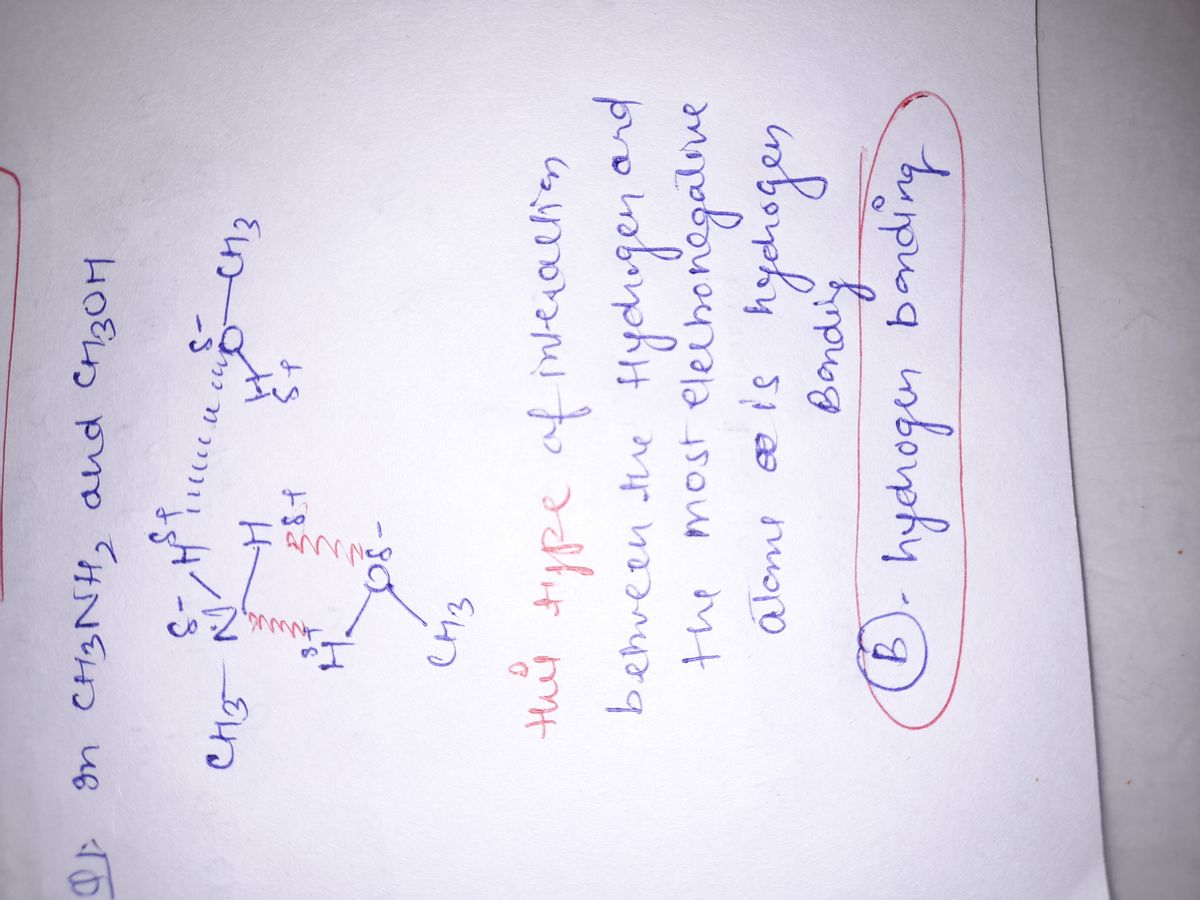 Q1: In CH3NH2 and CH3OH
δ- δ+ δ-
CH3 – N̈ – H O – CH3
H H
δ+ δ+
δ+
H Oδ-
CH3
this type of interaction
between the Hydrogen and
the most electronegative
atoms is hydrogen
Bonding
(B). hydrogen bonding